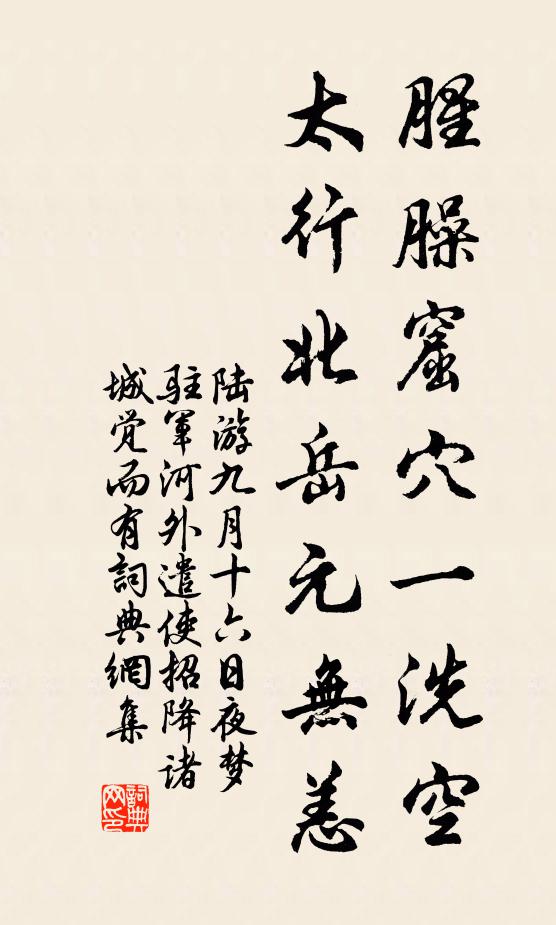 腥臊窟穴一洗空
太行北岳元無恙
陆游九月十六日夜梦
驻軍河外遣使招降诸
城觉而有詞典網集
詞典网印